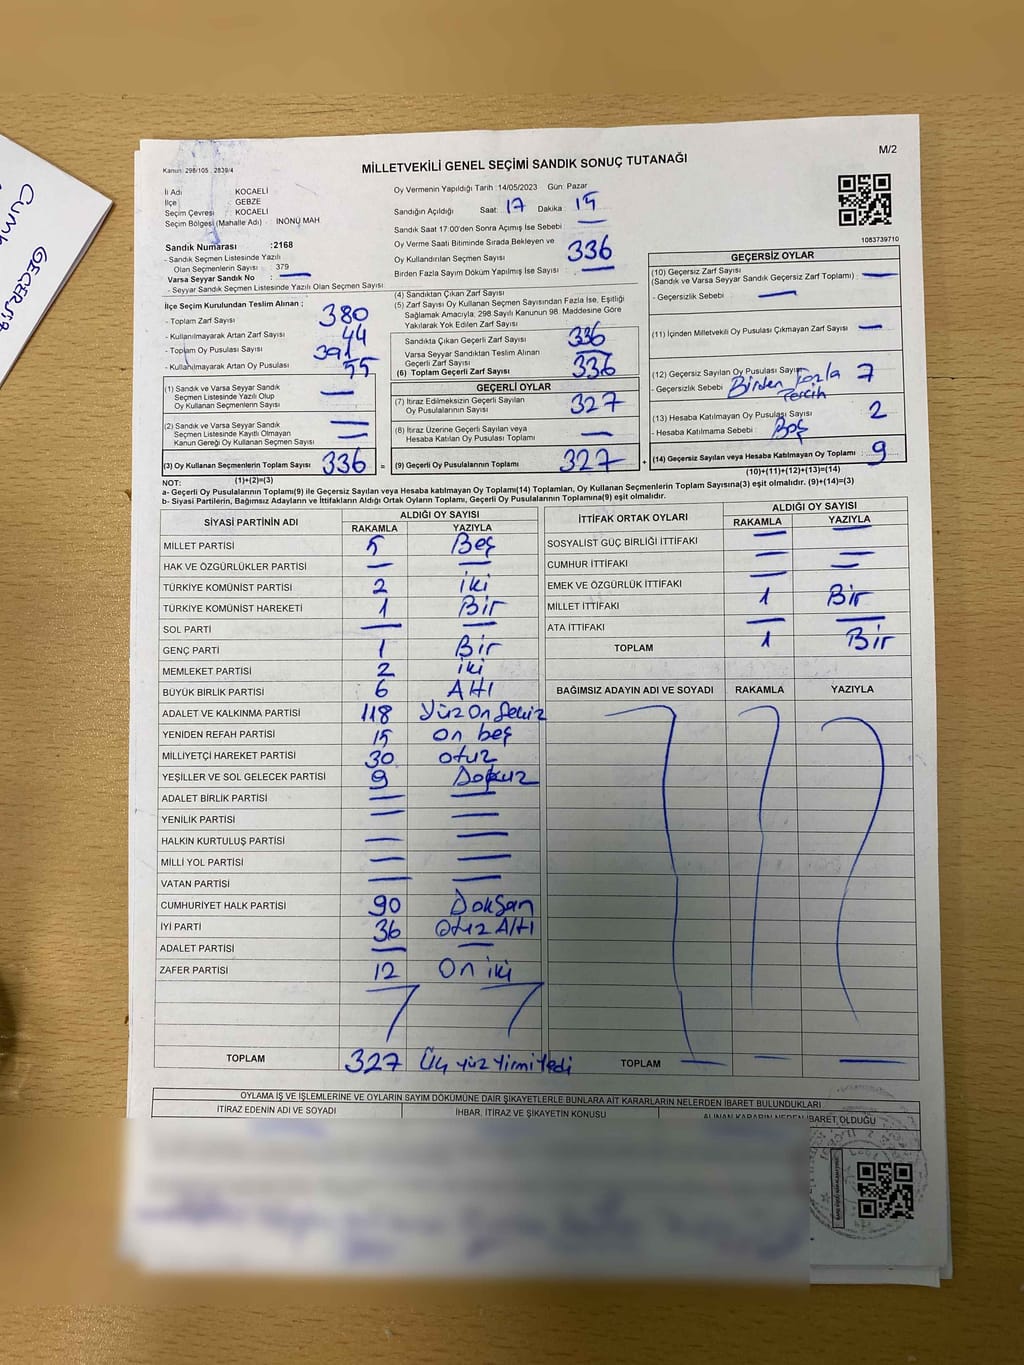 MİLLETVEKİLİ GENEL SEÇİMİ SANDIK SONUÇ TUTANAĞI
M/2
Kanun: 298/105 , 2839/4
İl Adı KOCAELİ
İlçe GEBZE
Seçim Çevresi : KOCAELİ
Seçim Bölgesi (Mahalle Adı) : İNÖNÜ MAH
Sandık Numarası :2168
- Sandık Seçmen Listesinde Yazılı
Olan Seçmenlerin Sayısı 379
Varsa Seyyar Sandık No : —
- Seyyar Sandık Seçmen Listesinde Yazılı Olan Seçmen Sayısı
Oy Vermenin Yapıldığı Tarih :14/05/2023 Gün: Pazar
Sandığın Açıldığı Saat: 17 Dakika 15
Sandık Saat 17:00'den Sonra Açımış İse Sebebi —
Oy Verme Saati Bitiminde Sırada Bekleyen ve
Oy Kullandırılan Seçmen Sayısı 336
Birden Fazla Sayım Döküm Yapılmış İse Sayısı —
1083739710
İlçe Seçim Kurulundan Teslim Alınan ;
- Toplam Zarf Sayısı 380
- Kullanılmayarak Artan Zarf Sayısı 44
- Toplam Oy Pusulası Sayısı 391
- Kullanılmayarak Artan Oy Pusulası 55
(1) Sandık ve Varsa Seyyar Sandık
Seçmen Listesinde Yazılı Olup
Oy Kullanan Seçmenlerin Sayısı —
(2) Sandık ve Varsa Seyyar Sandık
Seçmen Listesinde Kayıtlı Olmayan
Kanun Gereği Oy Kullanan Seçmen Sayısı —
(3) Oy Kullanan Seçmenlerin Toplam Sayısı 336 =
(1)+(2)=(3)
(4) Sandıktan Çıkan Zarf Sayısı
(5) Zarf Sayısı Oy Kullanan Seçmen Sayısından Fazla İse, Eşitliği
Sağlamak Amacıyla, 298 Sayılı Kanunun 98. Maddesine Göre
Yakılarak Yok Edilen Zarf Sayısı
Sandıkta Çıkan Geçerli Zarf Sayısı 336
Varsa Seyyar Sandıktan Teslim Alınan
Geçerli Zarf Sayısı —
(6) Toplam Geçerli Zarf Sayısı 336
GEÇERLİ OYLAR
(7) İtiraz Edilmeksizin Geçerli Sayılan
Oy Pusulalarının Sayısı 327
(8) İtiraz Üzerine Geçerli Sayılan veya
Hesaba Katılan Oy Pusulası Toplamı —
(9) Geçerli Oy Pusulalarının Toplamı 327 +
GEÇERSİZ OYLAR
(10) Geçersiz Zarf Sayısı
(Sandık ve Varsa Seyyar Sandık Geçersiz Zarf Toplamı) : —
- Geçersizlik Sebebi : —
(11) İçinden Milletvekili Oy Pusulası Çıkmayan Zarf Sayısı : —
(12) Geçersiz Sayılan Oy Pusulası Sayısı 7
- Geçersizlik Sebebi : Birden Fazla
Tercih
(13) Hesaba Katılmayan Oy Pusulası Sayısı 2
- Hesaba Katılmama Sebebi : Boş
(14) Geçersiz Sayılan veya Hesaba Katılmayan Oy Toplamı : 9
(10)+(11)+(12)+(13)=(14)
NOT:
a- Geçerli Oy Pusulalarının Toplamı(9) ile Geçersiz Sayılan veya Hesaba katılmayan Oy Toplamı(14) Toplamları, Oy Kullanan Seçmenlerin Toplam Sayısına(3) eşit olmalıdır. (9)+(14)=(3)
b- Siyasi Partilerin, Bağımsız Adayların ve İttifakların Aldığı Oy Ortak Oyların Toplamı, Geçerli Oy Pusulalarının Toplamına(9) eşit olmalıdır.
SİYASİ PARTİNİN ADI ALDIĞI OY SAYISI
RAKAMLA YAZIYLA
MİLLET PARTİSİ 5 Beş
HAK VE ÖZGÜRLÜKLER PARTİSİ — —
TÜRKİYE KOMÜNİST PARTİSİ 2 iki
TÜRKİYE KOMÜNİST HAREKETİ 1 Bir
SOL PARTİ — —
GENÇ PARTİ 1 Bir
MEMLEKET PARTİSİ 2 iki
BÜYÜK BİRLİK PARTİSİ 6 Altı
ADALET VE KALKINMA PARTİSİ 118 Yüz On Sekiz
YENİDEN REFAH PARTİSİ 15 on beş
MİLLİYETÇİ HAREKET PARTİSİ 30 otuz
YEŞİLLER VE SOL GELECEK PARTİSİ 9 Dokuz
ADALET BİRLİK PARTİSİ — —
YENİLİK PARTİSİ — —
HALKIN KURTULUŞ PARTİSİ — —
MİLLİ YOL PARTİSİ — —
VATAN PARTİSİ — —
CUMHURİYET HALK PARTİSİ 90 Doksan
İYİ PARTİ 36 Otuz Altı
ADALET PARTİSİ — —
ZAFER PARTİSİ 12 On iki
TOPLAM 327 Üç yüz Yirmi Yedi
İTTİFAK ORTAK OYLARI ALDIĞI OY SAYISI
RAKAMLA YAZIYLA
SOSYALİST GÜÇ BİRLİĞİ İTTİFAKI — —
CUMHUR İTTİFAKI — —
EMEK VE ÖZGÜRLÜK İTTİFAKI — —
MİLLET İTTİFAKI 1 Bir
ATA İTTİFAKI — —
TOPLAM 1 Bir
BAĞIMSIZ ADAYIN ADI VE SOYADI RAKAMLA YAZIYLA
TOPLAM — — —
OYLAMA İŞ VE İŞLEMLERİNE VE OYLARIN SAYIM DÖKÜMÜNE DAİR ŞİKAYETLERLE BUNLARA AİT KARARLARIN NELERDEN İBARET BULUNDUKLARI
İTİRAZ EDENİN ADI VE SOYADI İHBAR, İTİRAZ VE ŞİKAYETİN KONUSU ALINAN KARARIN NEDEN İBARET OLDUĞU